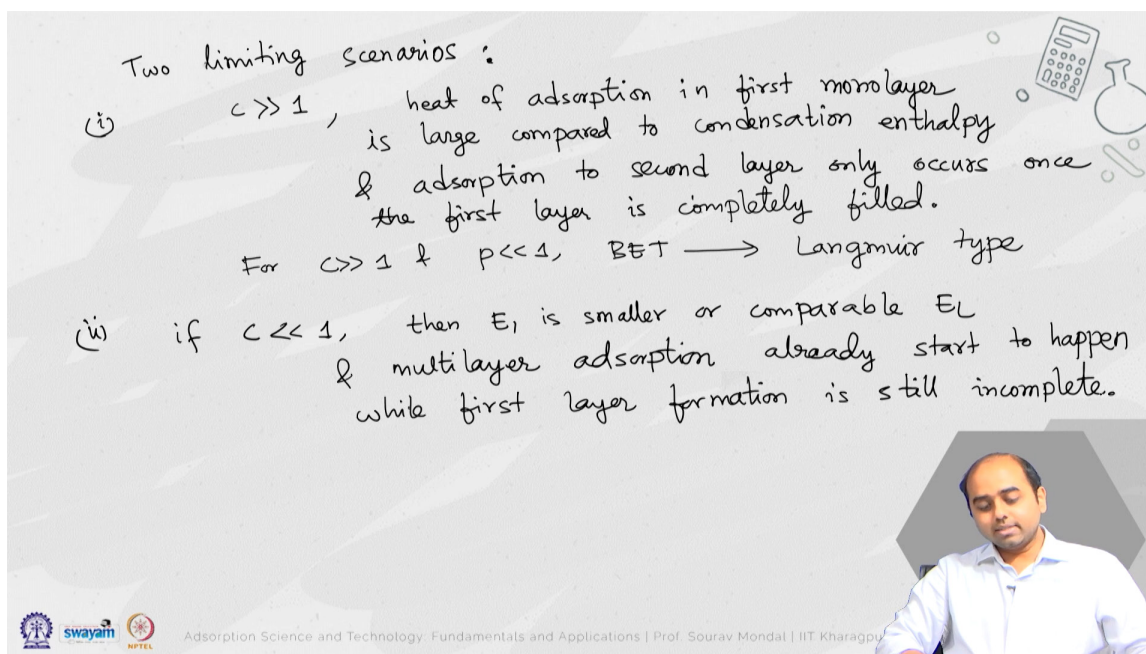 Two limiting scenarios :
(i) c >> 1, heat of adsorption in first monolayer
is large compared to condensation enthalpy
& adsorption to second layer only occurs once
the first layer is completely filled.
For c>> 1 & p<< 1, BET ⟶ Langmuir type
(ii) if c << 1, then E₁ is smaller or comparable E_L
& multilayer adsorption already start to happen
while first layer formation is still incomplete.
swayam
NPTEL
Adsorption Science and Technology: Fundamentals and Applications | Prof. Sourav Mondal | IIT Kharagpu